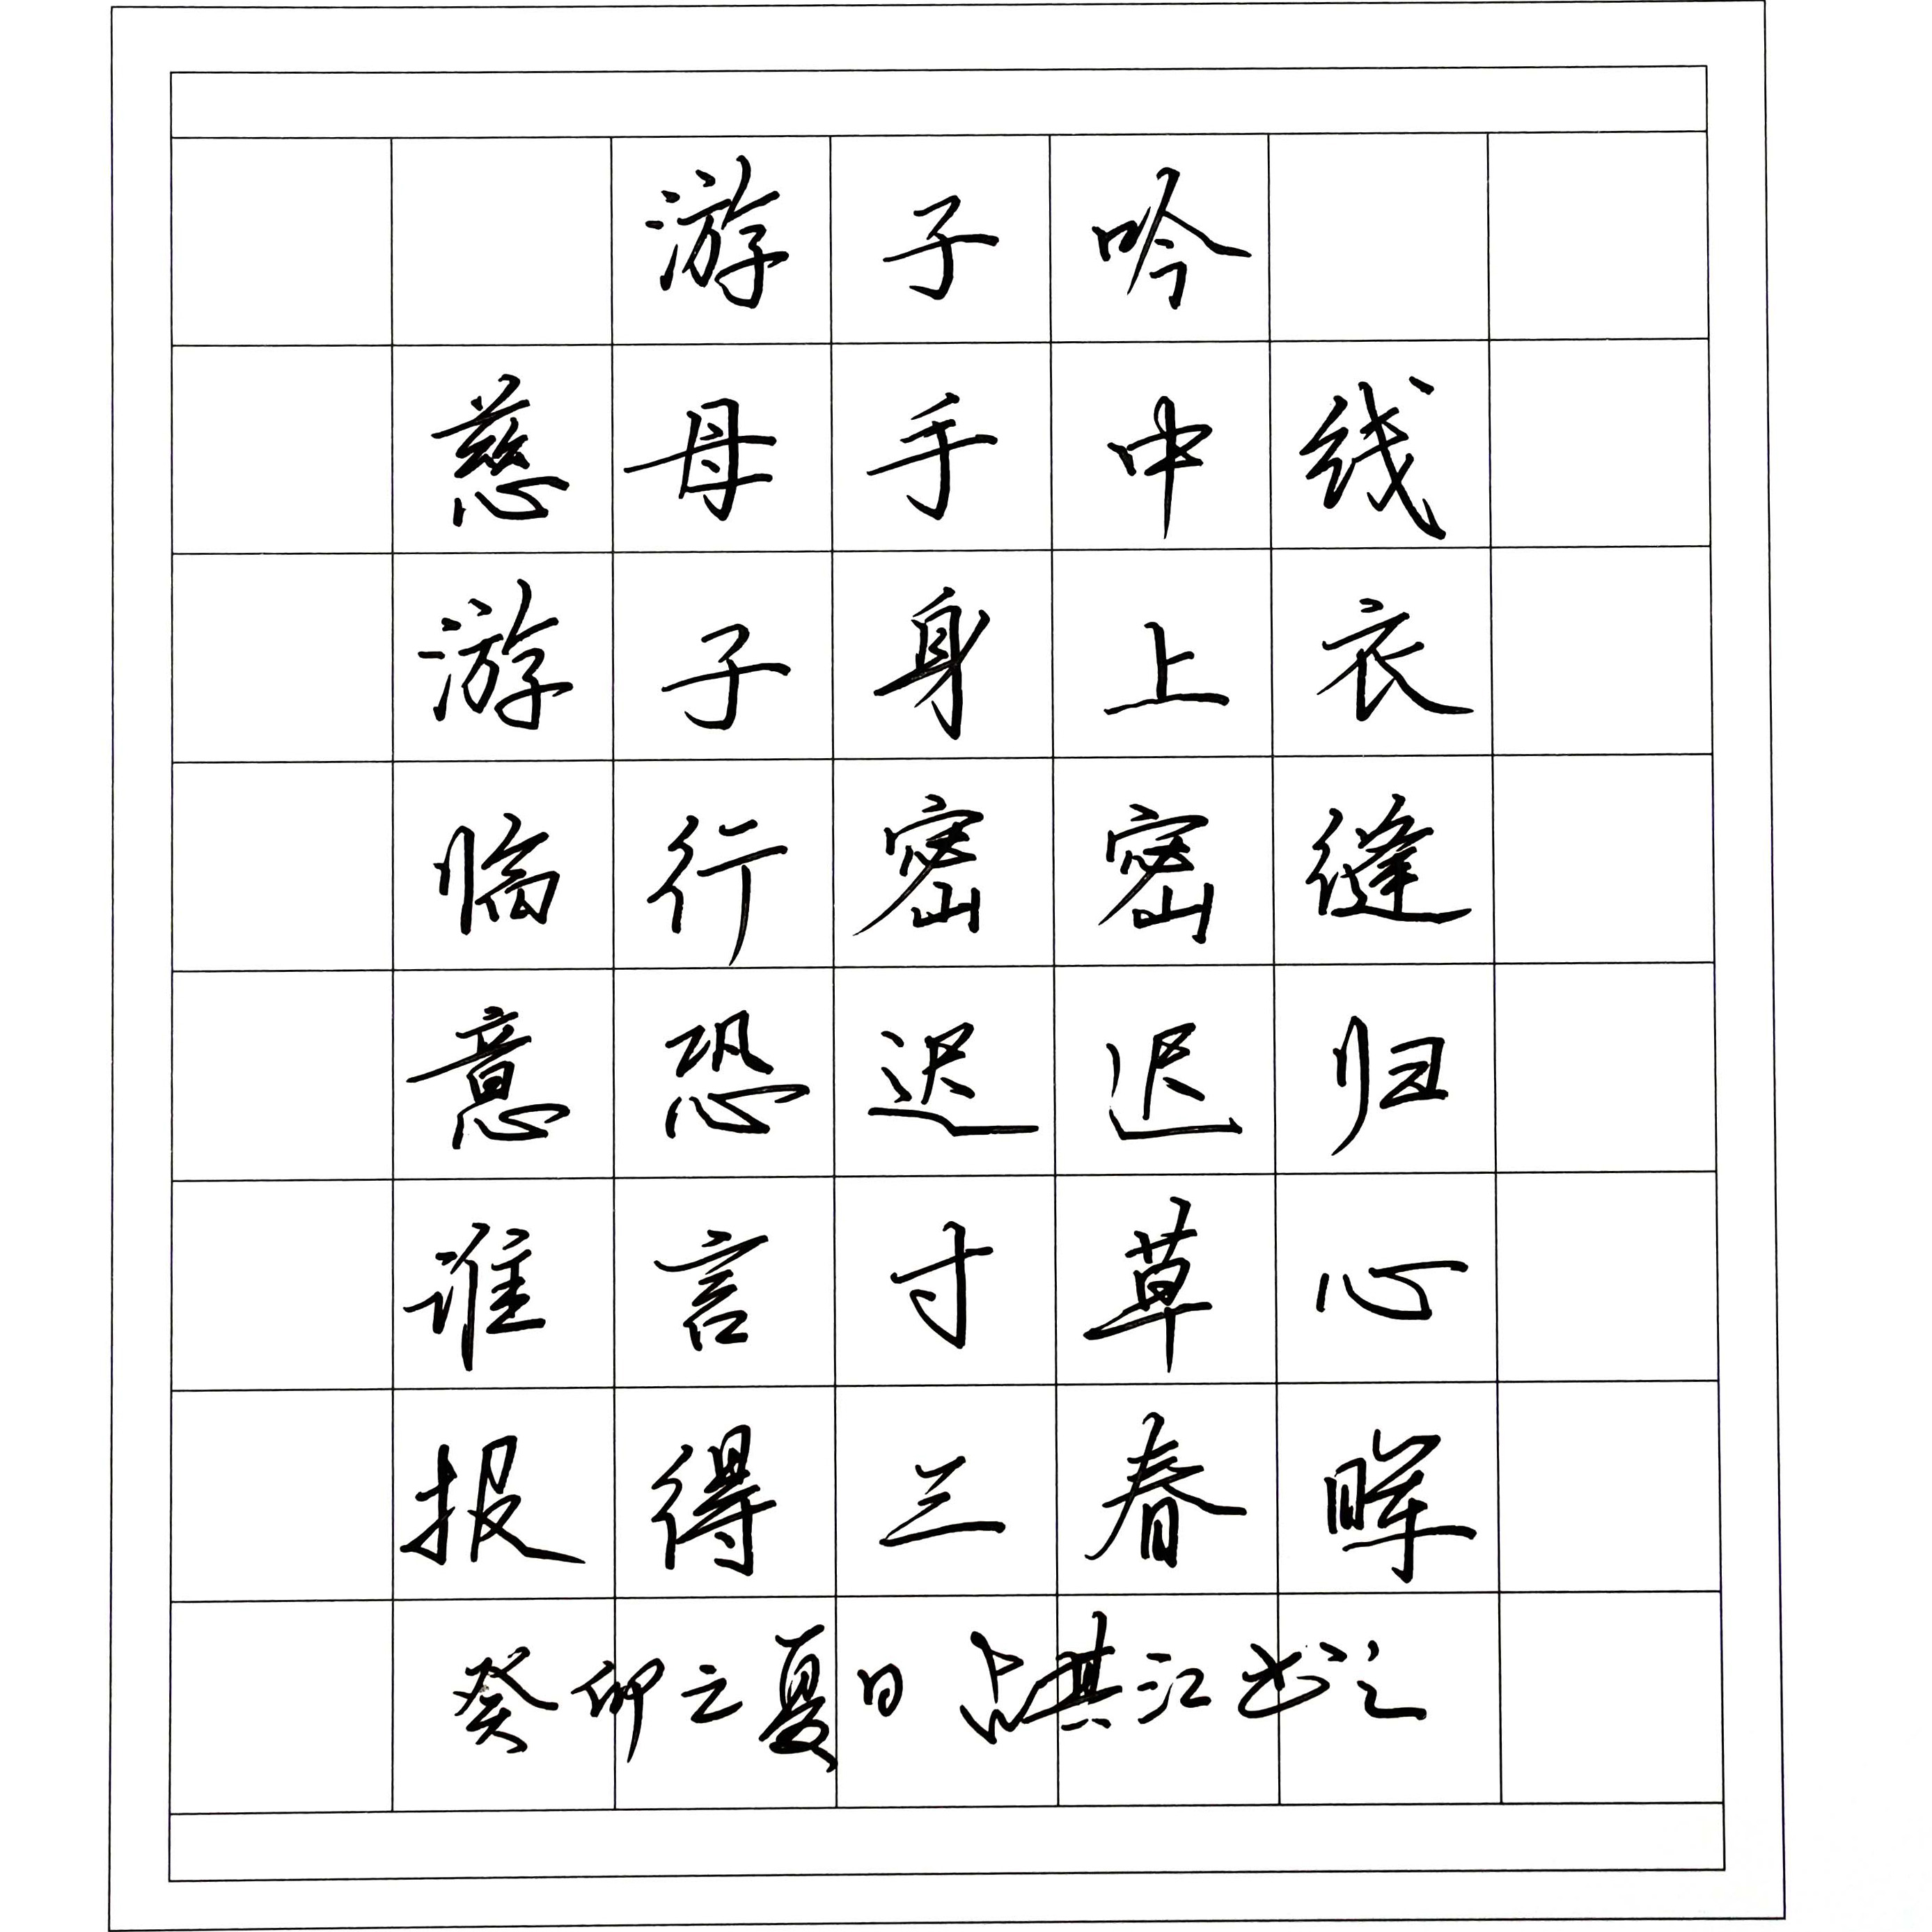 游子吟
慈母手中线
游子身上衣
临行密密缝
意恐迟迟归
谁言寸草心
报得三春晖
癸卯之夏日